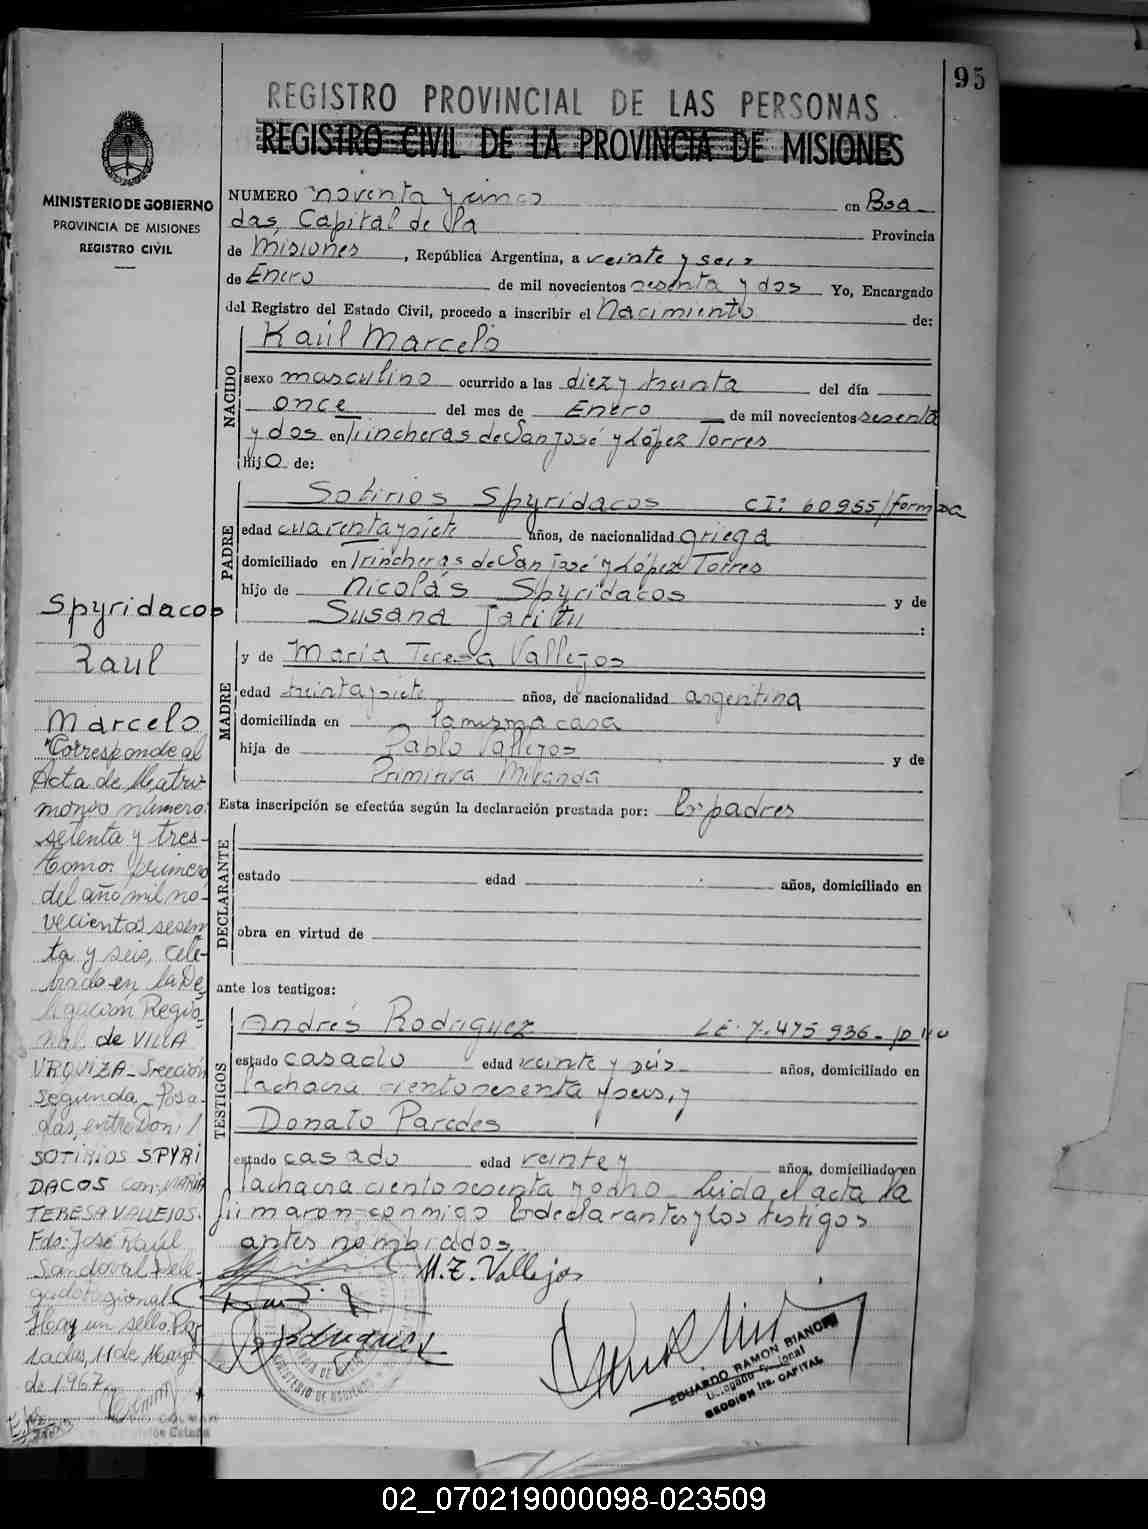 95
REGISTRO PROVINCIAL DE LAS PERSONAS
REGISTRO CIVIL DE LA PROVINCIA DE MISIONES
MINISTERIO DE GOBIERNO
PROVINCIA DE MISIONES
REGISTRO CIVIL
NUMERO noventa y cinco en Posa-
das, Capital de la Provincia
de Misiones, República Argentina, a veinte y seis
de Enero de mil novecientos sesenta y dos Yo, Encargado
del Registro del Estado Civil, procedo a inscribir el Nacimiento de:
NACIDO
Raúl Marcelo
sexo masculino ocurrido a las diez y treinta del día
once del mes de Enero de mil novecientos sesenta
y dos en Trincheras de San José y López Torres
hijo de:
PADRE
Sotirios Spyridacos CI: 60955/Formosa
edad cuarenta y siete años, de nacionalidad griega
domiciliado en Trincheras de San José y López Torres
hijo de Nicolás Spyridacos y de
Susana :
MADRE
y de María Teresa Vallejos
edad treinta y siete años, de nacionalidad argentina
domiciliada en la misma casa
hija de Pablo Vallejos y de
Primitiva Miranda
Esta inscripción se efectúa según la declaración prestada por: los padres
DECLARANTE
estado edad años, domiciliado en
obra en virtud de
ante los testigos:
TESTIGOS
Andrés Rodriguez LE. 7.475.936-
estado casado edad veinte y seis años, domiciliado en
la chacra ciento sesenta y seis, y
Donato Paredes
estado casado edad veinte y años, domiciliado en
la chacra ciento sesenta y ocho Leida el acta la
firmaron conmigo los declarantes y los testigos
antes nombrados.
M. T. Vallejos
Rodriguez
EDUARDO RAMON BIANCHI
Delegado Regional
SECCION 1ra. CAPITAL
Spyridacos
Raul
Marcelo
"Corresponde al
Acta de Matri-
monio número:
setenta y tres-
tomo: primero
del año mil no-
vecientos sesen
ta y seis, cele-
brado en la De-
legación Regio-
nal de VILLA
URQUIZA- Sección
Segunda- Posa-
das, entre Don:
SOTIRIOS SPYRI
DACOS con MARIA
TERESA VALLEJOS.
Fdo: José Raúl
Sandoval Dele-
gado Regional-
Hay un sello. Po-
sadas, 11 de Mayo
de 1967.
02_070219000098-023509